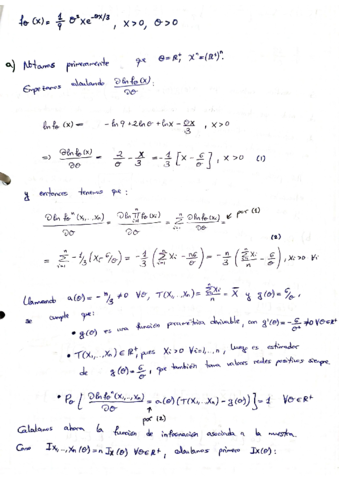 fθ(x) = 1/9 θ² x e^(-θx/3), x>0, θ>0
a) Notamos primeramente que Θ=ℝ⁺, Xⁿ=(ℝ⁺)ⁿ.
Empezamos calculando ∂ln fθ(x)/∂θ
ln fθ(x) = -ln9+2lnθ+lnx-θx/3, x>0
⇒ ∂ln fθ(x)/∂θ = 2/θ - x/3 = -1/3 [x - 6/θ], x>0 (1)
y entonces tenemos que:
∂ln fθⁿ(x₁,...,xₙ)/∂θ = ∂ln∏fθ(xᵢ)/∂θ = Σᵢ₌₁ⁿ ∂ln fθ(xᵢ)/∂θ = por (1)
= Σᵢ₌₁ⁿ -1/3(xᵢ-6/θ) = -1/3 (Σᵢ₌₁ⁿ xᵢ - n6/θ) = -n/3 (Σᵢ₌₁ⁿ xᵢ/n - 6/θ), xᵢ>0 ∀i (2)
Llamando a(θ) = -n/3 ≠0 ∀θ, T(X₁,...,Xₙ) = Σᵢ₌₁ⁿ Xᵢ/n = X̄ y g(θ) = 6/θ,
se cumple que:
• g(θ) es una función paramétrica derivable, con g'(θ) = -6/θ² ≠0 ∀θ∈ℝ⁺
• T(X₁,...,Xₙ)∈ℝ⁺, pues Xᵢ>0 ∀i=1,...,n, luego es estimador
de g(θ)=6/θ, que también toma valores reales positivos siempre.
• Pθ [∂ln fθⁿ(X₁,...,Xₙ)/∂θ = a(θ)(T(X₁,...,Xₙ)-g(θ))] = 1 ∀θ∈ℝ⁺
por (2)
Calculamos ahora la función de información asociada a la muestra.
Como I x₁,...,xₙ(θ) = n Ix(θ) ∀θ∈ℝ⁺, calculamos primero Ix(θ):